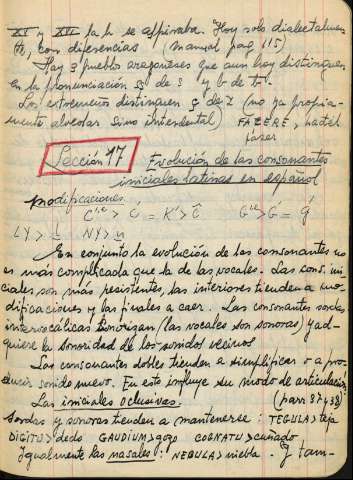 XI y XVI la h se aspiraba. Hoy solo dialectalmen
te, con diferencias (Manual pag 115)
Hay 3 pueblos aragoneses que aun hoy distinguen
en la pronunciación de s y b de v.
Los extremeños distinguen ç de z (no ya propia-
mente alveolar sino interdental) FAZERE,
fazer
Lección 17 Evolución de las consonantes
iniciales latinas en español
Modificaciones
LY > NY >
En conjunto la evolución de las consonantes no
es más complicada que la de las vocales. Las cons. ini-
ciales, son más resistentes, las interiores tienden a mo-
dificaciones y las finales a caer. Las consonantes sordas
intervocálicas (las vocales son sonoras) y ad-
quiere la sonoridad de los sonidos vecinos
Las consonantes dobles tienden a simplificar o a pro-
ducir sonido nuevo. En esto influye su modo de articulación
Las iniciales oclusivas. (parr 37 y 38)
Sordas y sonoras tienden a mantenerse: TEGULA > teja
DIGITU > dedo GAUDIUM > gozo COGNATU > cuñado
Igualmente las nasales: NEBULA > niebla. Y tam-